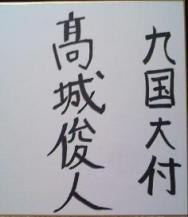 九国大付
髙城俊人